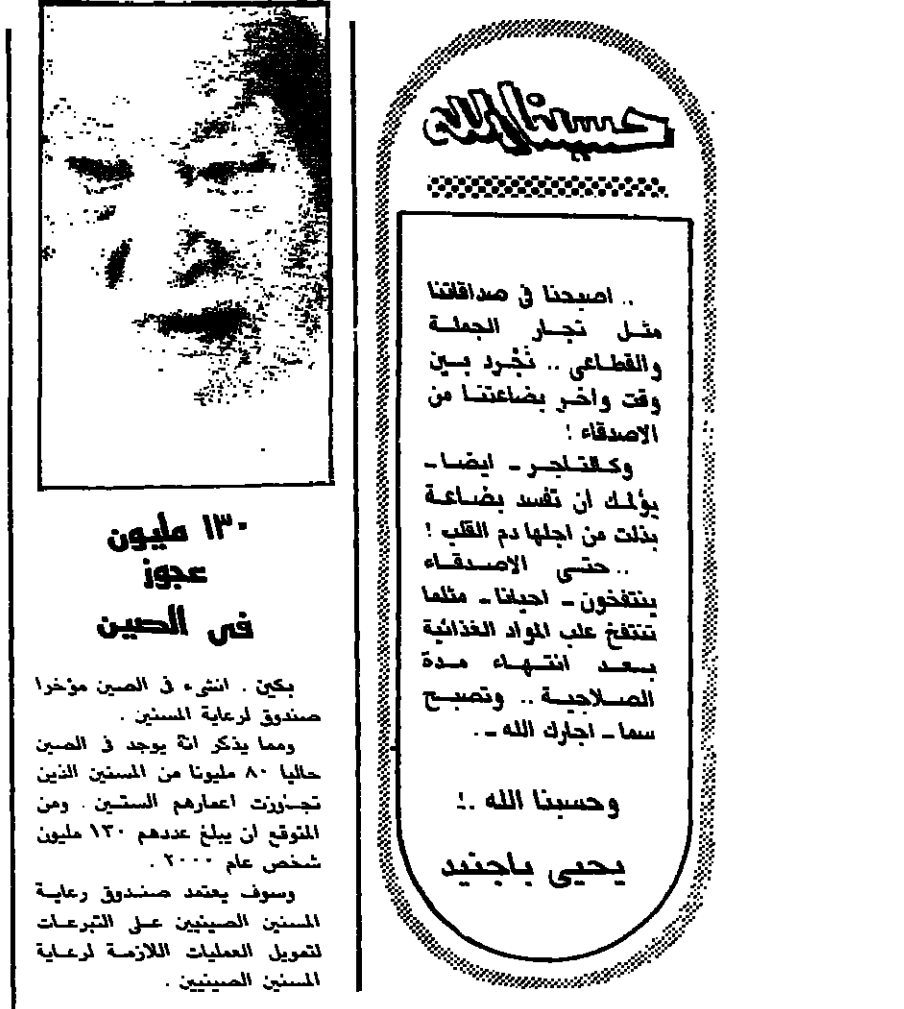 حسبنا الله
.. اصبحنا في صداقاتنا
مثل تجار الجملة
والقطاعى .. نَجْرد بين
وقت واخر بضاعتنا من
الاصدقاء !
وكالتاجر ـ ايضا ـ
يؤلمك ان تفسد بضاعة
بذلت من اجلها دم القلب !
.. حتى الاصدقاء
ينتفخون ـ احيانا ـ مثلما
تنتفخ علب المواد الغذائية
بعد انتهاء مدة
الصلاحية .. وتصبح
سما ـ اجارك الله ـ .
وحسبنا الله .!
يحيى باجنيد
١٣٠ مليون
عجوز
فى الصين
بكين . انشىء في الصين مؤخرا
صندوق لرعاية المسنين .
ومما يذكر انه يوجد في الصين
حاليا ٨٠ مليونا من المسنين الذين
تجاوزت اعمارهم الستين . ومن
المتوقع ان يبلغ عددهم ١٣٠ مليون
شخص عام ٢٠٠٠ .
وسوف يعتمد صندوق رعاية
المسنين الصينيين على التبرعات
لتمويل العمليات اللازمة لرعاية
المسنين الصينيين .